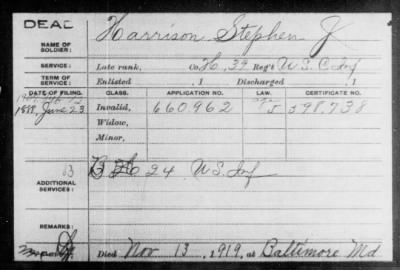 DEAD
Harrison, Stephen J
NAME OF SOLDIER:
SERVICE: Late rank, Co. H, 39 Reg't U.S.C. Inf
TERM OF SERVICE: Enlisted , 1 Discharged , 1
DATE OF FILING. CLASS. APPLICATION NO. LAW. CERTIFICATE NO.
1888, June 23 Invalid, 660.962 J 598.738
Widow,
Minor,
ADDITIONAL SERVICES: 24 U.S. Inf
REMARKS:
Died Nov 13, 1919, at Baltimore Md